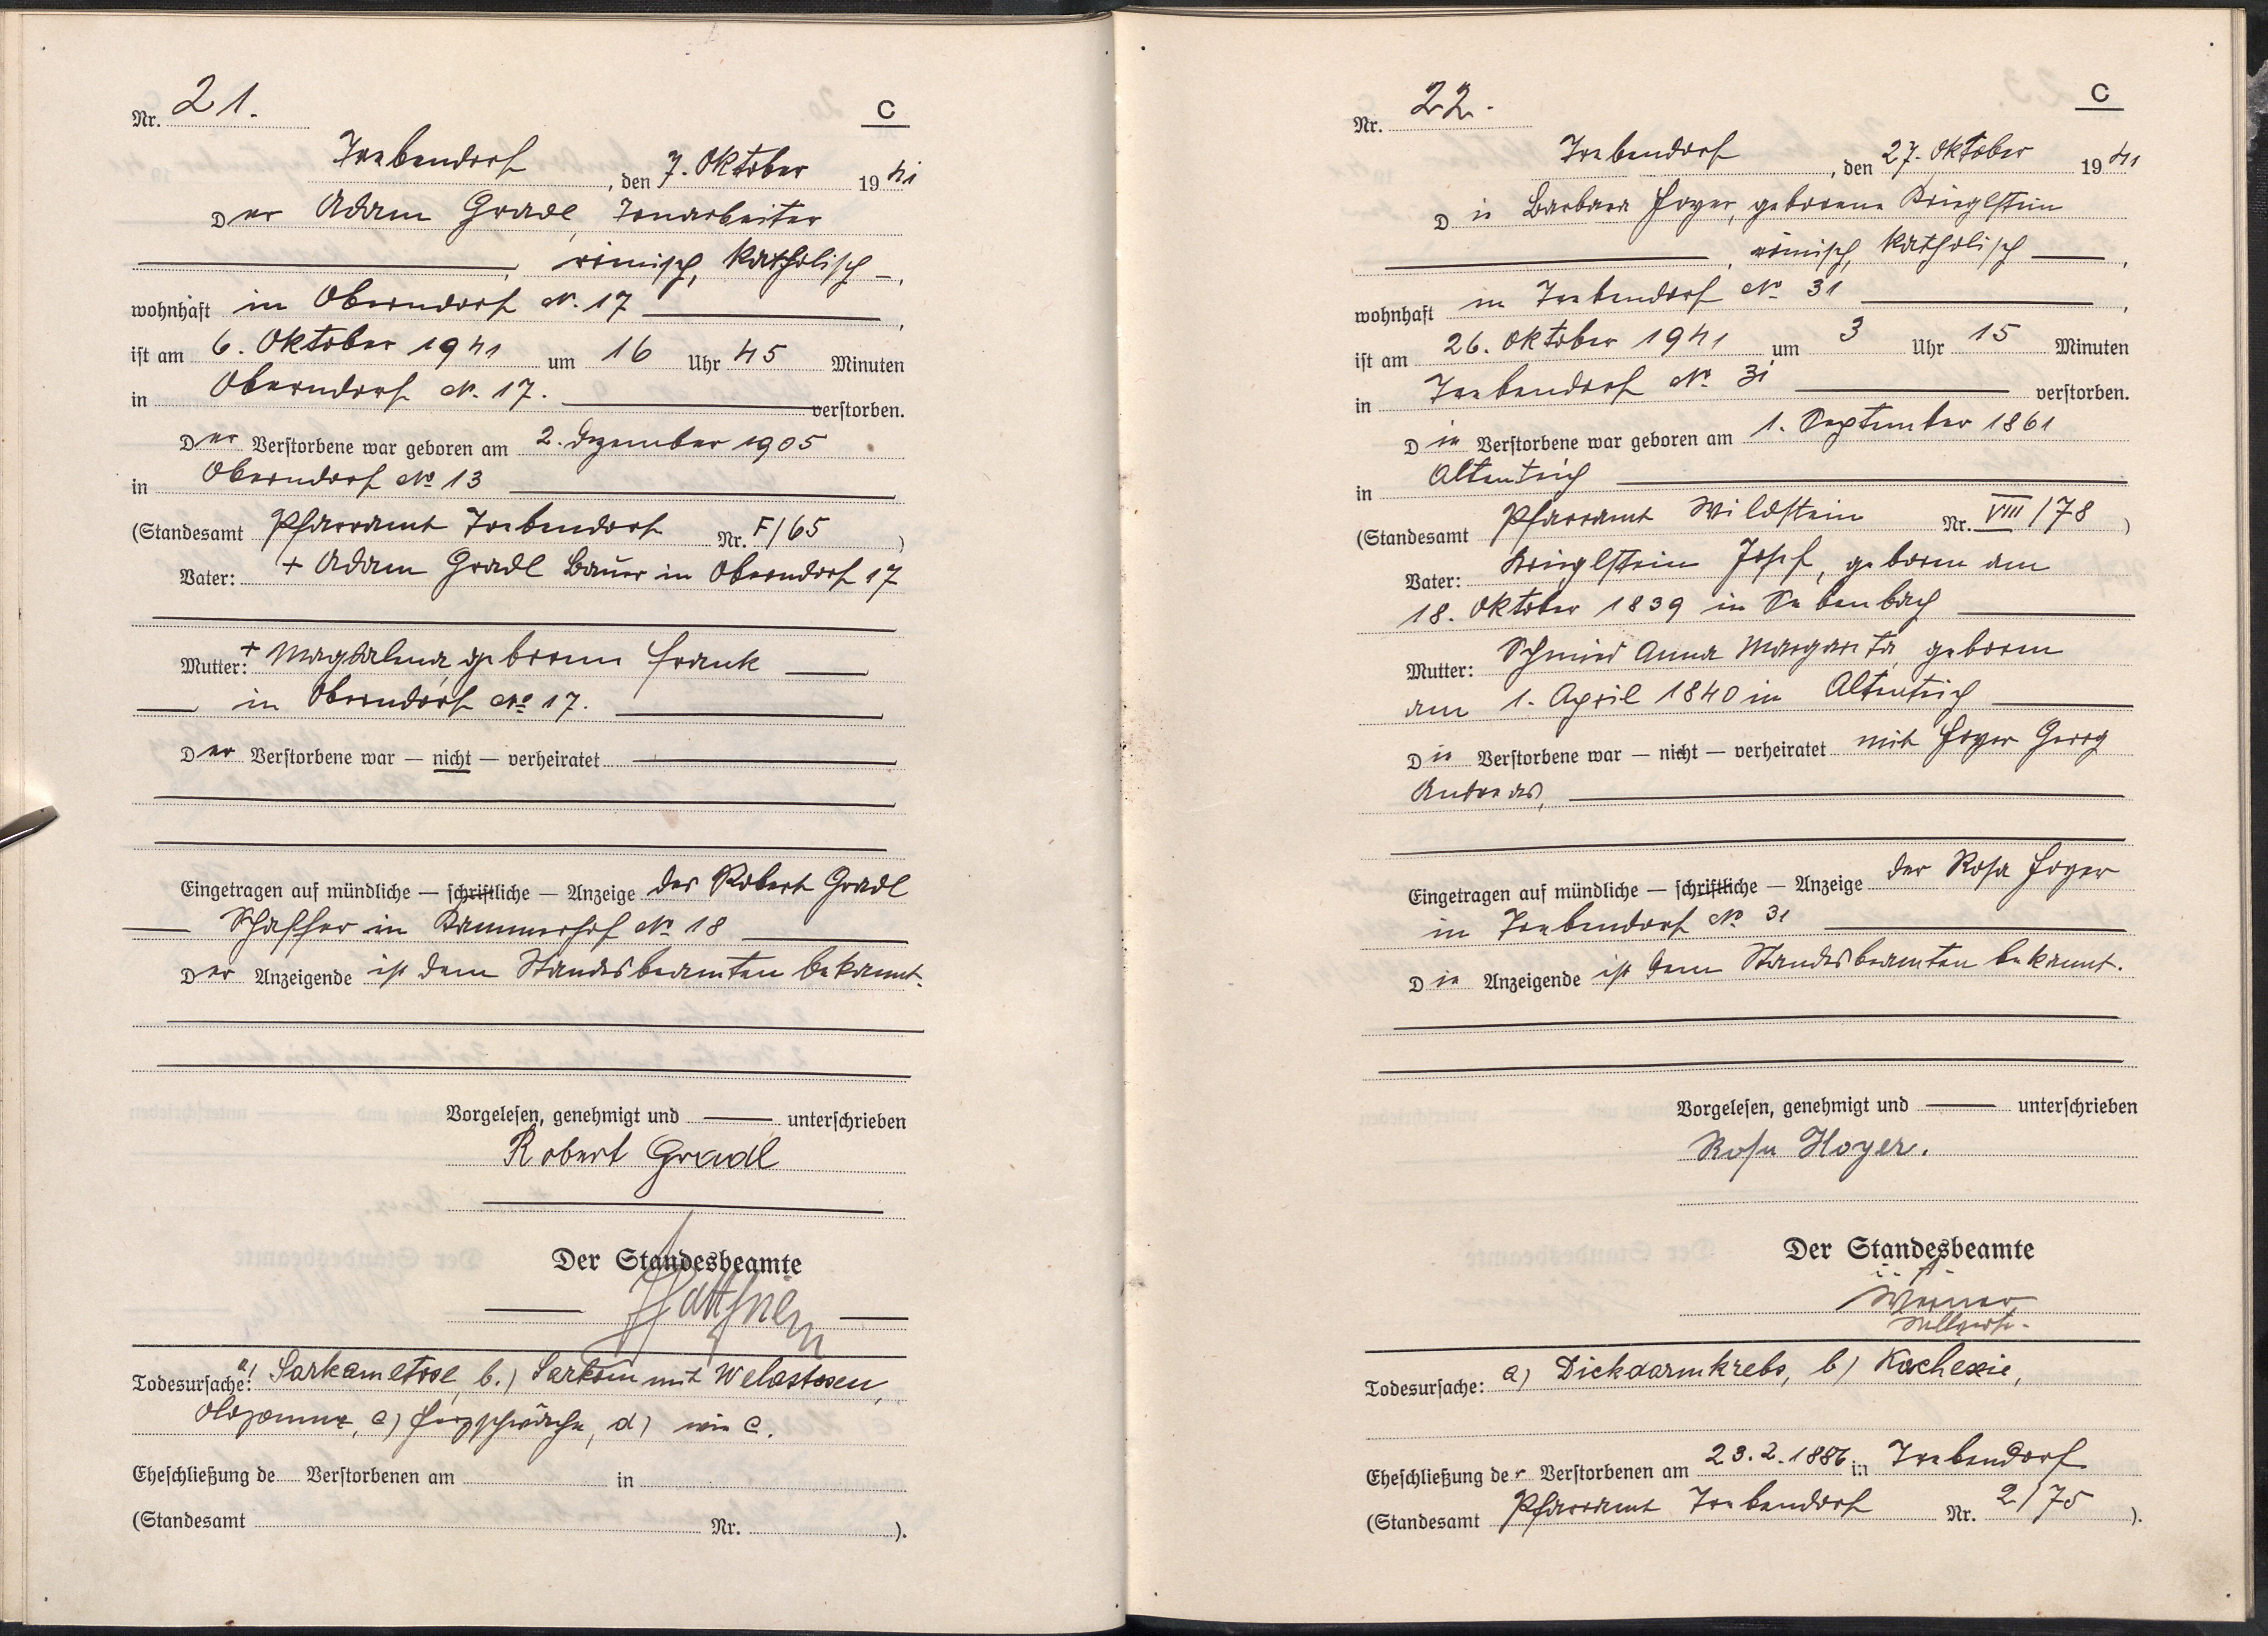 Nr. 21.
C
Trebendorf, den 7. Oktober 1941
Der Adam Gradl, Tonarbeiter
römisch katholisch
wohnhaft in Oberndorf No. 17
ist am 6. Oktober 1941 um 16 Uhr 45 Minuten
in Oberndorf No. 17. verstorben.
Der Verstorbene war geboren am 2. Dezember 1905
in Oberndorf No 13
(Standesamt Pfarramt Trebendorf Nr. F/65)
Vater: + Adam Gradl Bauer in Oberndorf 17
Mutter: + Magdalena, geborene Frank
in Oberndorf No 17.
Der Verstorbene war — nicht — verheiratet
Eingetragen auf mündliche — schriftliche — Anzeige des Robert Gradl
Schaffer in Kammerhof No 18
Der Anzeigende ist dem Standesbeamten bekannt.
Vorgelesen, genehmigt und unterschrieben
Robert Gradl
Der Standesbeamte
Todesursache: a) b.) Sarkom mit
c) Herzschwäche, d) wie c.
Eheschließung de Verstorbenen am in
(Standesamt Nr. ).
Nr. 22.
C
Trebendorf, den 27. Oktober 1941
Die Barbara Hoyer, geborene Krieglstein
römisch katholisch
wohnhaft in Trebendorf No 31
ist am 26. Oktober 1941 um 3 Uhr 15 Minuten
in Trebendorf No 31 verstorben.
Die Verstorbene war geboren am 1. September 1861
in Altenteich
(Standesamt Pfarramt Wildstein Nr. VIII/78)
Vater: Krieglstein Josef, geboren am
18. Oktober 1839 in Seebenbach
Mutter: Schmied Anna Margareta, geboren
am 1. April 1840 in Altenteich
Die Verstorbene war — nicht — verheiratet mit Hoyer Georg
Andreas,
Eingetragen auf mündliche — schriftliche — Anzeige der Rosa Hoyer
in Trebendorf No 31
Die Anzeigende ist dem Standesbeamten bekannt.
Vorgelesen, genehmigt und unterschrieben
Rosa Hoyer.
Der Standesbeamte
Todesursache: a) Dickdarmkrebs, b) Kachexie,
Eheschließung der Verstorbenen am 23.2.1886 in Trebendorf
(Standesamt Pfarramt Trebendorf Nr. 2/75).